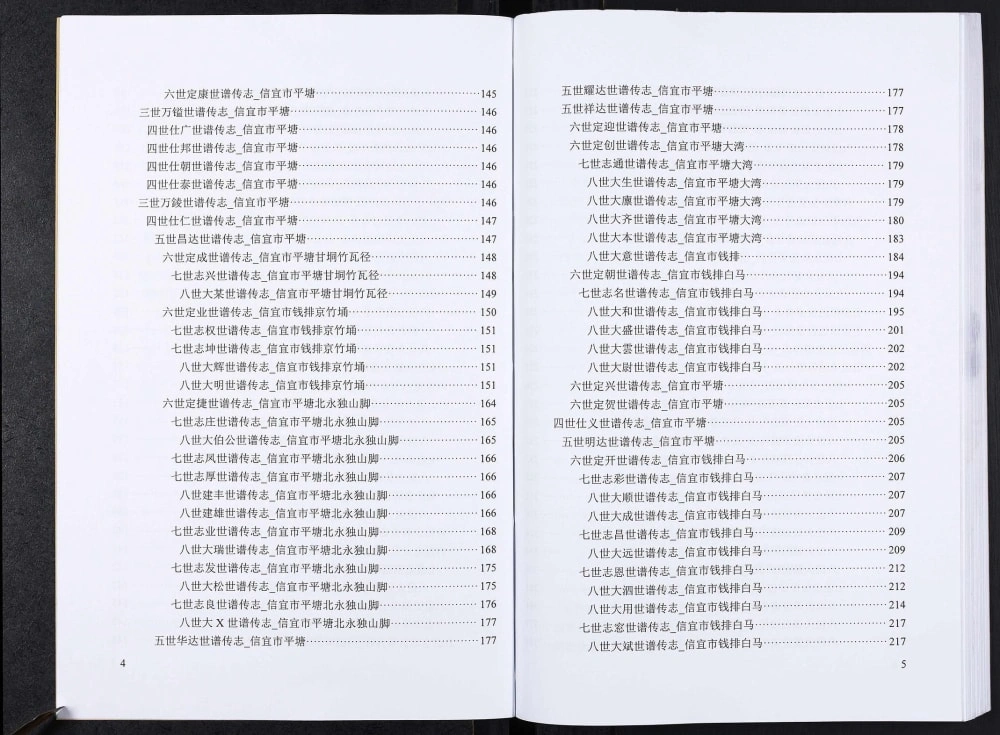 六世定康世谱传志_信宜市平塘 145
三世万镒世谱传志_信宜市平塘 146
四世仕广世谱传志_信宜市平塘 146
四世仕邦世谱传志_信宜市平塘 146
四世仕朝世谱传志_信宜市平塘 146
四世仕泰世谱传志_信宜市平塘 146
三世万錂世谱传志_信宜市平塘 146
四世仕仁世谱传志_信宜市平塘 147
五世昌达世谱传志_信宜市平塘 147
六世定成世谱传志_信宜市平塘甘垌竹瓦径 148
七世志兴世谱传志_信宜市平塘甘垌竹瓦径 148
八世大某世谱传志_信宜市平塘甘垌竹瓦径 149
六世定业世谱传志_信宜市钱排京竹埇 150
七世志权世谱传志_信宜市钱排京竹埇 151
七世志坤世谱传志_信宜市钱排京竹埇 151
八世大辉世谱传志_信宜市钱排京竹埇 151
八世大明世谱传志_信宜市钱排京竹埇 151
六世定捷世谱传志_信宜市平塘北永独山脚 164
七世志庄世谱传志_信宜市平塘北永独山脚 165
八世大伯公世谱传志_信宜市平塘北永独山脚 165
七世志凤世谱传志_信宜市平塘北永独山脚 166
七世志厚世谱传志_信宜市平塘北永独山脚 166
八世建丰世谱传志_信宜市平塘北永独山脚 166
八世建雄世谱传志_信宜市平塘北永独山脚 166
七世志业世谱传志_信宜市平塘北永独山脚 168
八世大瑞世谱传志_信宜市平塘北永独山脚 168
七世志发世谱传志_信宜市平塘北永独山脚 175
八世大松世谱传志_信宜市平塘北永独山脚 175
七世志良世谱传志_信宜市平塘北永独山脚 176
八世大 X 世谱传志_信宜市平塘北永独山脚 177
五世华达世谱传志_信宜市平塘 177
4
五世耀达世谱传志_信宜市平塘 177
五世祥达世谱传志_信宜市平塘 177
六世定迎世谱传志_信宜市平塘 178
六世定创世谱传志_信宜市平塘大湾 178
七世志通世谱传志_信宜市平塘大湾 179
八世大生世谱传志_信宜市平塘大湾 179
八世大廪世谱传志_信宜市平塘大湾 179
八世大齐世谱传志_信宜市平塘大湾 180
八世大本世谱传志_信宜市平塘大湾 183
八世大意世谱传志_信宜市钱排 184
六世定朝世谱传志_信宜市钱排白马 194
七世志名世谱传志_信宜市钱排白马 194
八世大和世谱传志_信宜市钱排白马 195
八世大盛世谱传志_信宜市钱排白马 201
八世大雲世谱传志_信宜市钱排白马 202
八世大尉世谱传志_信宜市钱排白马 202
六世定兴世谱传志_信宜市平塘 205
六世定贺世谱传志_信宜市平塘 205
四世仕义世谱传志_信宜市平塘 205
五世明达世谱传志_信宜市平塘 205
六世定开世谱传志_信宜市钱排白马 206
七世志彩世谱传志_信宜市钱排白马 207
八世大顺世谱传志_信宜市钱排白马 207
八世大成世谱传志_信宜市钱排白马 207
七世志昌世谱传志_信宜市钱排白马 209
八世大远世谱传志_信宜市钱排白马 209
七世志恩世谱传志_信宜市钱排白马 212
八世大泗世谱传志_信宜市钱排白马 212
八世大用世谱传志_信宜市钱排白马 214
七世志窓世谱传志_信宜市钱排白马 217
八世大斌世谱传志_信宜市钱排白马 217
5